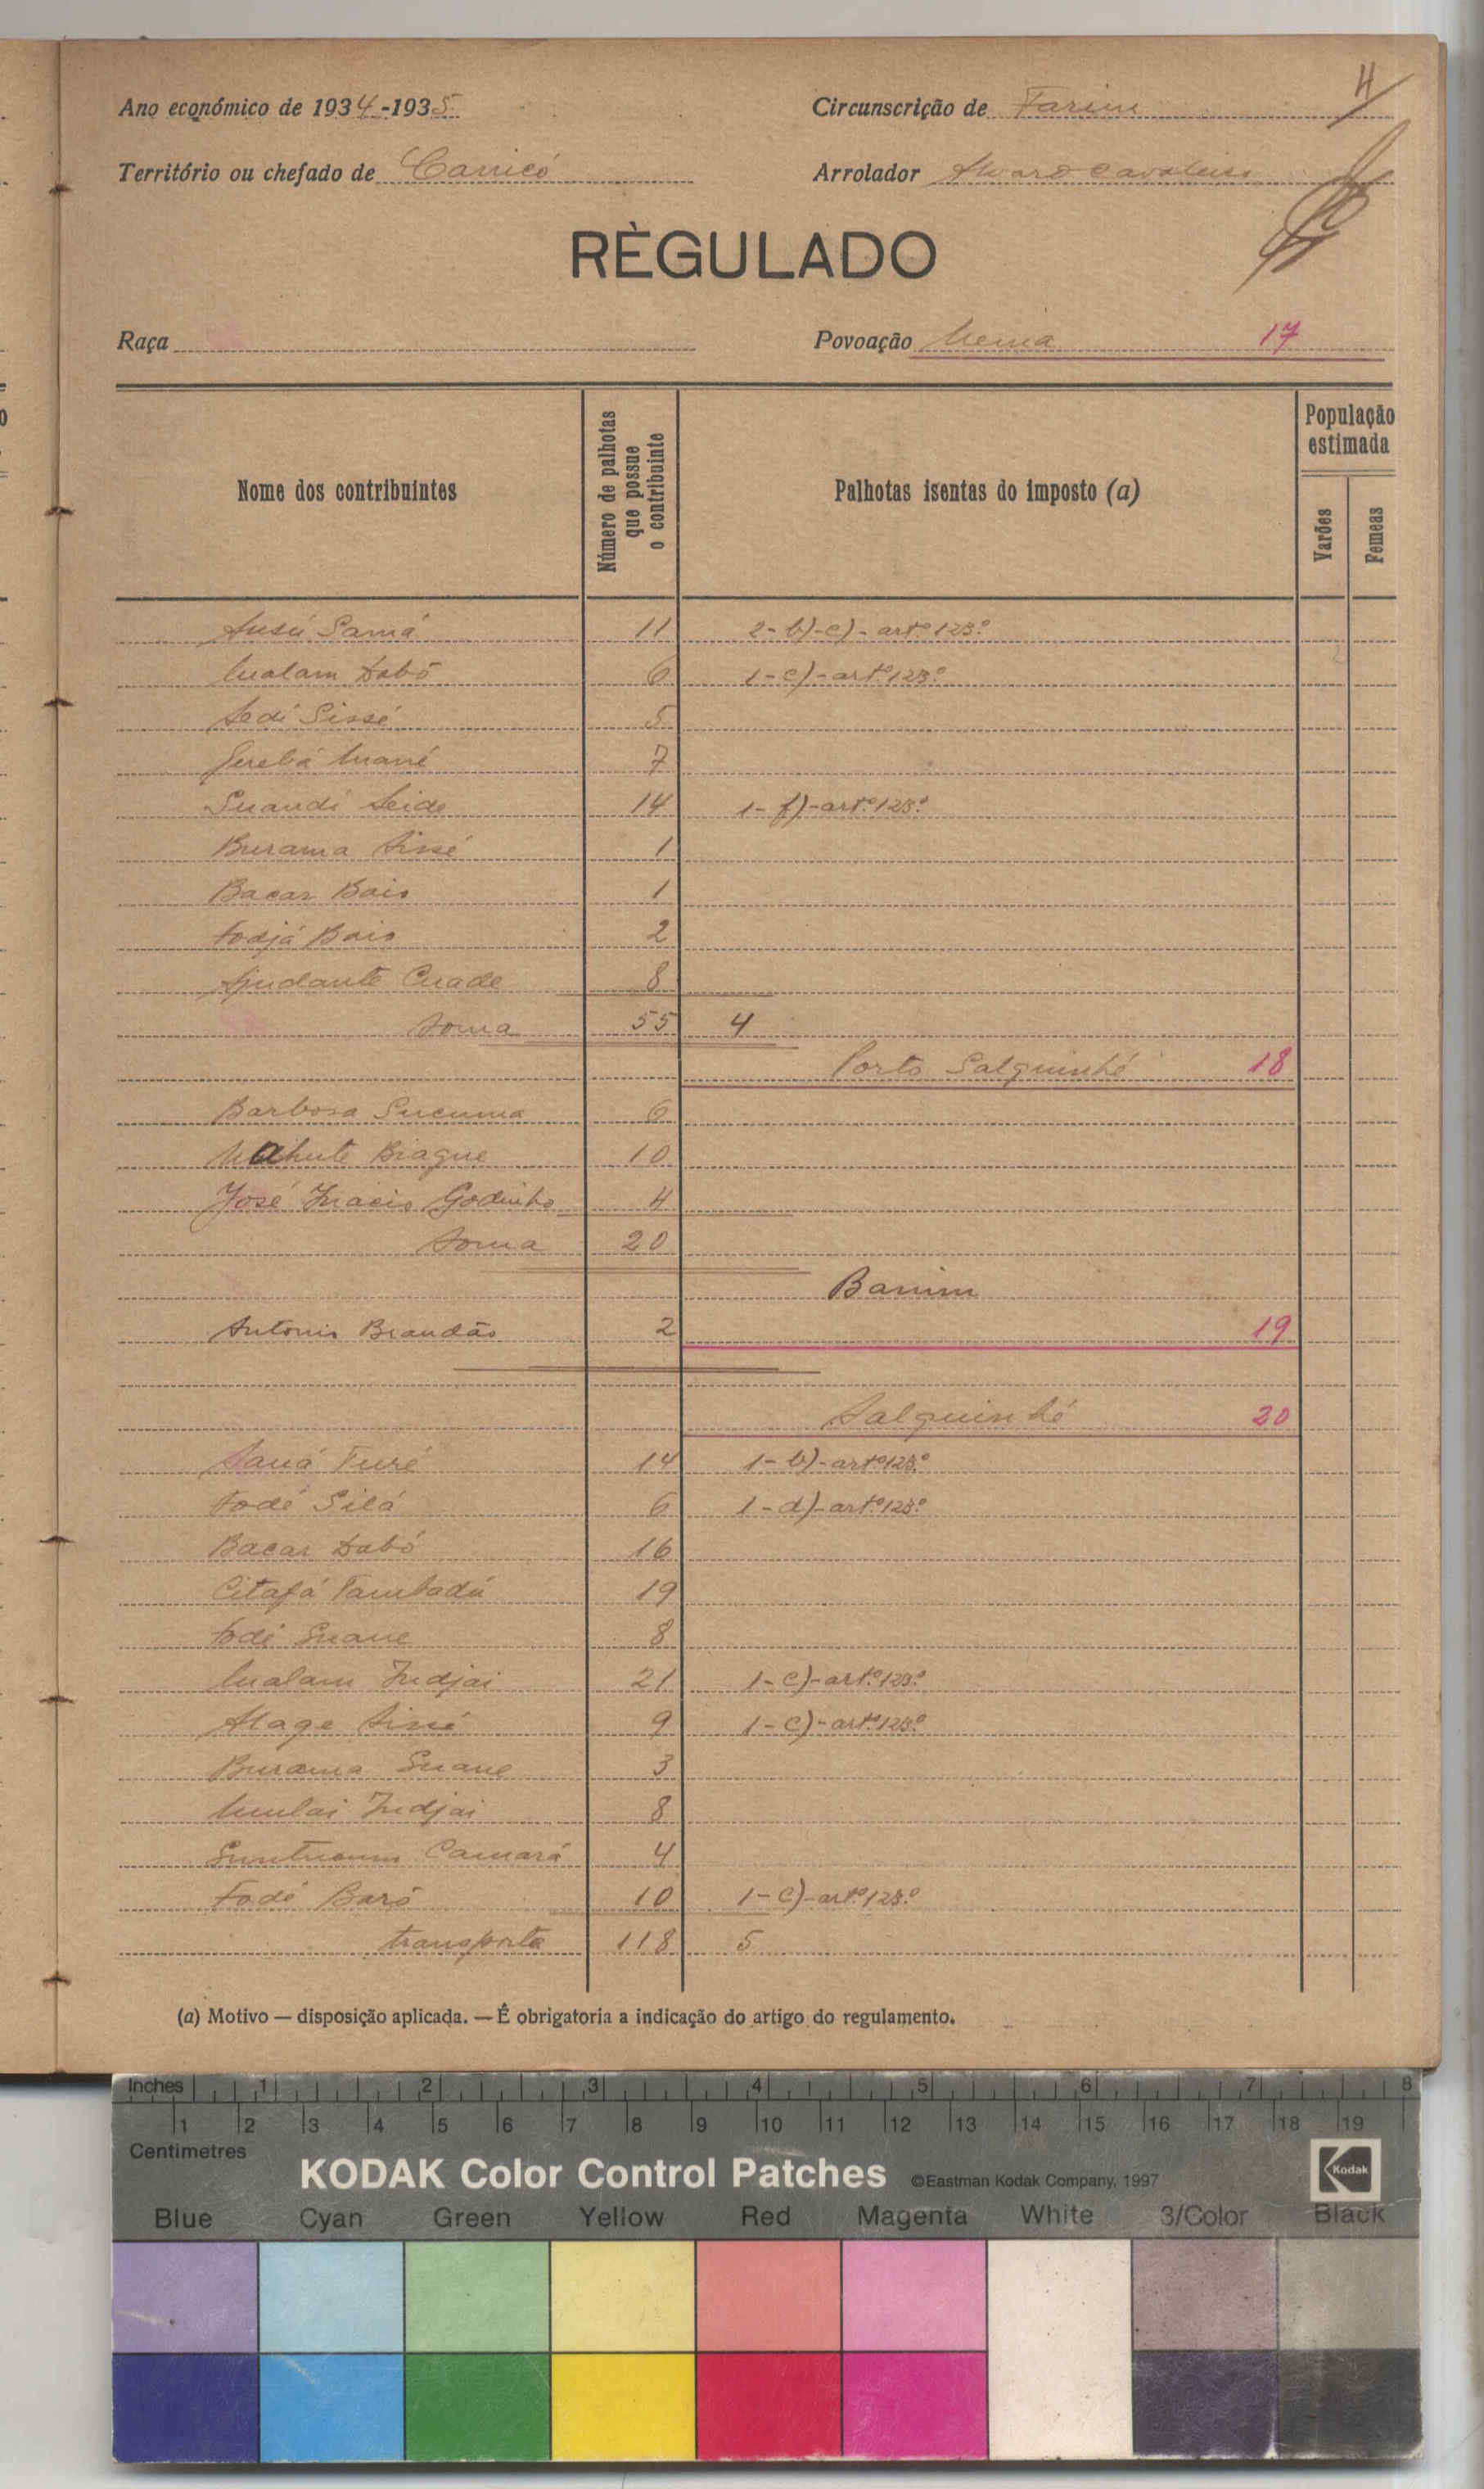 4
Ano económico de 1934-1935
Circunscrição de Farim
Território ou chefado de Carricó
Arrolador Alvaro Cavaleiro
RÈGULADO
Raça
Povoação Mema 17
Nome dos contribuintes
Número de palhotas que possue o contribuinte
Palhotas isentas do imposto (a)
População estimada
Varões
Femeas
Ansú Samá 11 2-b)-c)-artº 123º
Mualam Dabó 6 1-c)-artº 123º
Sedi Sissé 5
Mané 7
Suandi Seide 14 1-f)-artº 123º
Burama Sissé 1
Bacar Baio 1
Fodjá Baio 2
Ajudante Cuade 8
Soma 55 4
Porto Salquinhé 18
Barbosa Sucuma 6
Mahute Biague 10
José Inacio Godinho 4
Soma 20
Banim
Antonio Brandão 2 19
Salquinhé 20
Saná Turé 14 1-b)-artº 123º
Fodé Silá 6 1-d)-artº 123º
Bacar Dabó 16
Citafá Tambadú 19
Fodé Suane 8
Mualam Indjai 21 1-c)-artº 123º
Alage Sissé 9 1-c)-artº 123º
Burama Suane 3
Mulai Indjai 8
Camará 4
Fodé Baró 10 1-c)-artº 123º
transporta 118 5
(a) Motivo — disposição aplicada. — É obrigatoria a indicação do artigo do regulamento.
Inches 1 2 3 4 5 6 7 8
1 2 3 4 5 6 7 8 9 10 11 12 13 14 15 16 17 18 19
Centimetres
KODAK Color Control Patches ©Eastman Kodak Company, 1997 Kodak
Blue Cyan Green Yellow Red Magenta White 3/Color Black